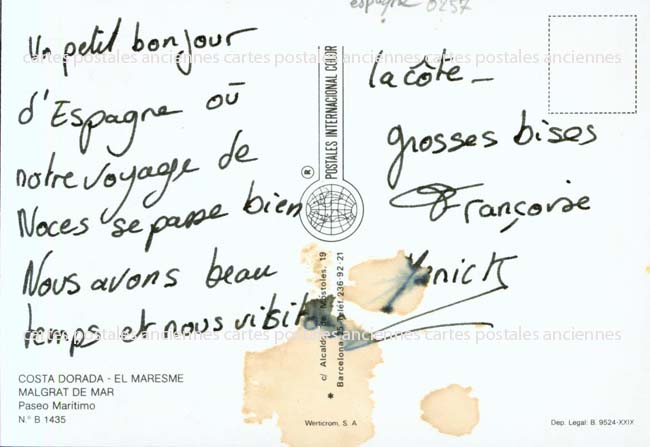 espagne 0257
Un petit bonjour
d'Espagne où
notre voyage de
Noces se passe bien
Nous avons beau
temps et nous
la côte_
grosses bises
Françoise
cartes postales anciennes cartes postales anciennes cartes postales anciennes
cartes postales anciennes cartes postales anciennes cartes postales anciennes
POSTALES INTERNACIONAL COLOR
®
c/ Alcalde Móstoles, 19
Barcelona Teléf. 236-92-21
*
COSTA DORADA - EL MARESME
MALGRAT DE MAR
Paseo Marítimo
N.° B 1435
Werticrom, S. A.
Dep. Legal: B. 9524-XXIX